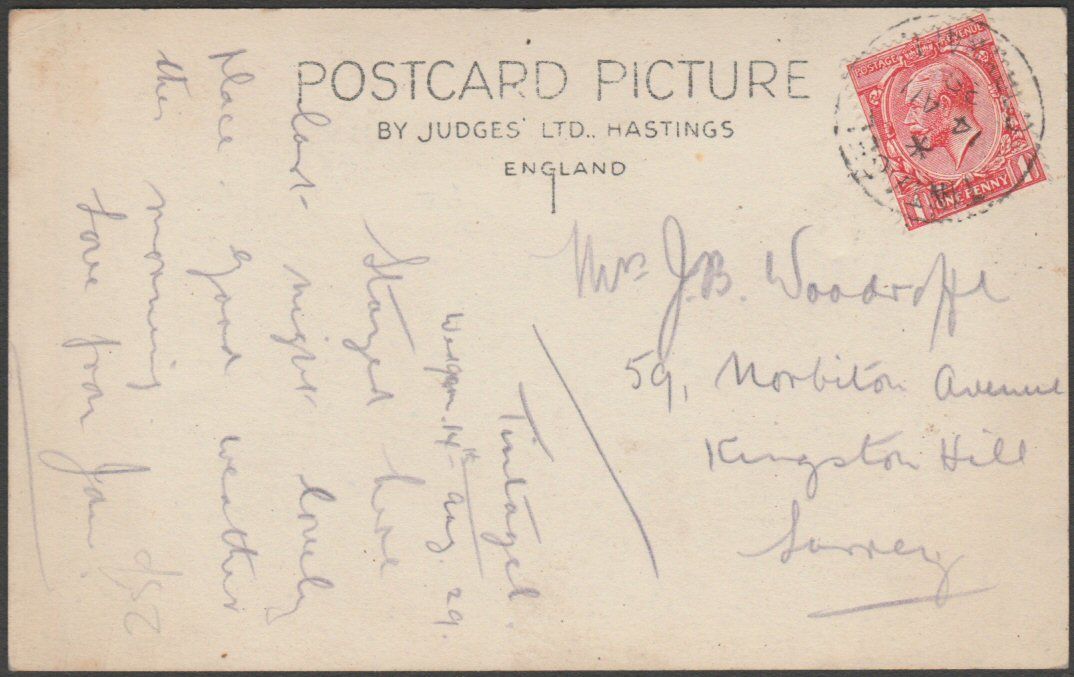 POSTCARD PICTURE
BY JUDGES' LTD., HASTINGS
ENGLAND
POSTAGE REVENUE
ONE PENNY
Mrs J.B. Woodroffe
59, Norbiton Avenue
Kingston Hill
Surrey
Tintagel.
14th Aug. 29.
Stayed here
last night lovely
place. good weather
this morning
Love from Jan.